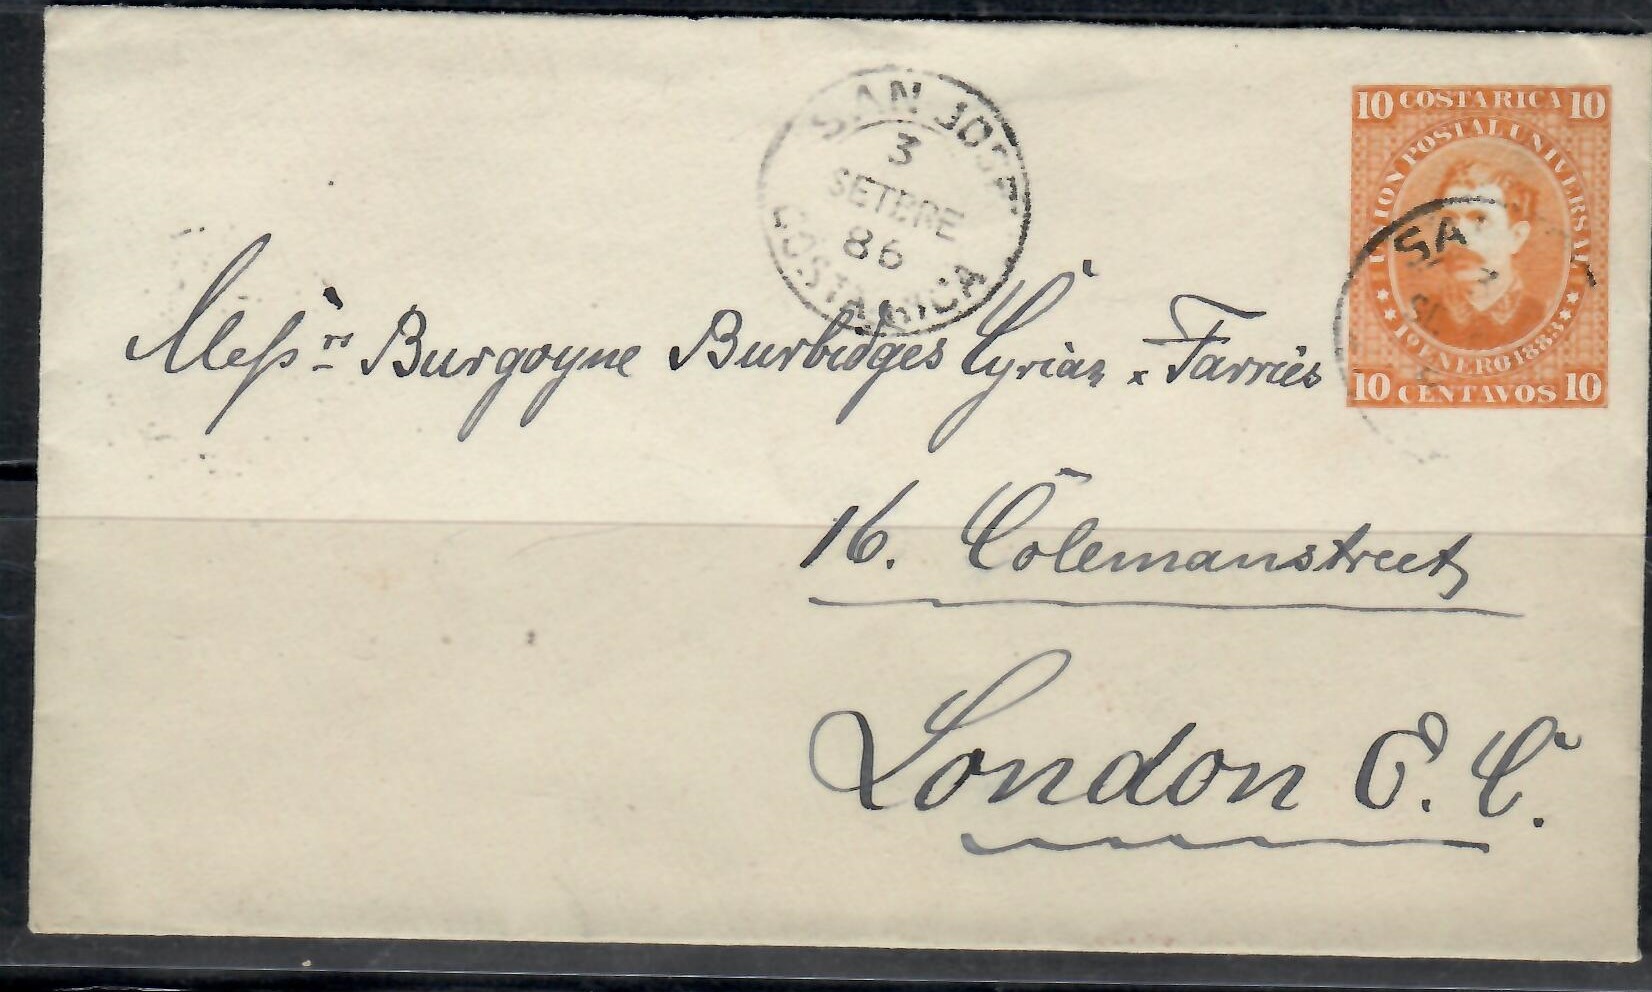 SAN JOSE
3
SETBRE
86
COSTA RICA
10 COSTA RICA 10
UNION POSTAL UNIVERSAL
10 ENERO 1883
10 CENTAVOS 10
SA
Messrs Burgoyne Burbidges Cyriax & Farries
16. Colemanstreet
London E. C.